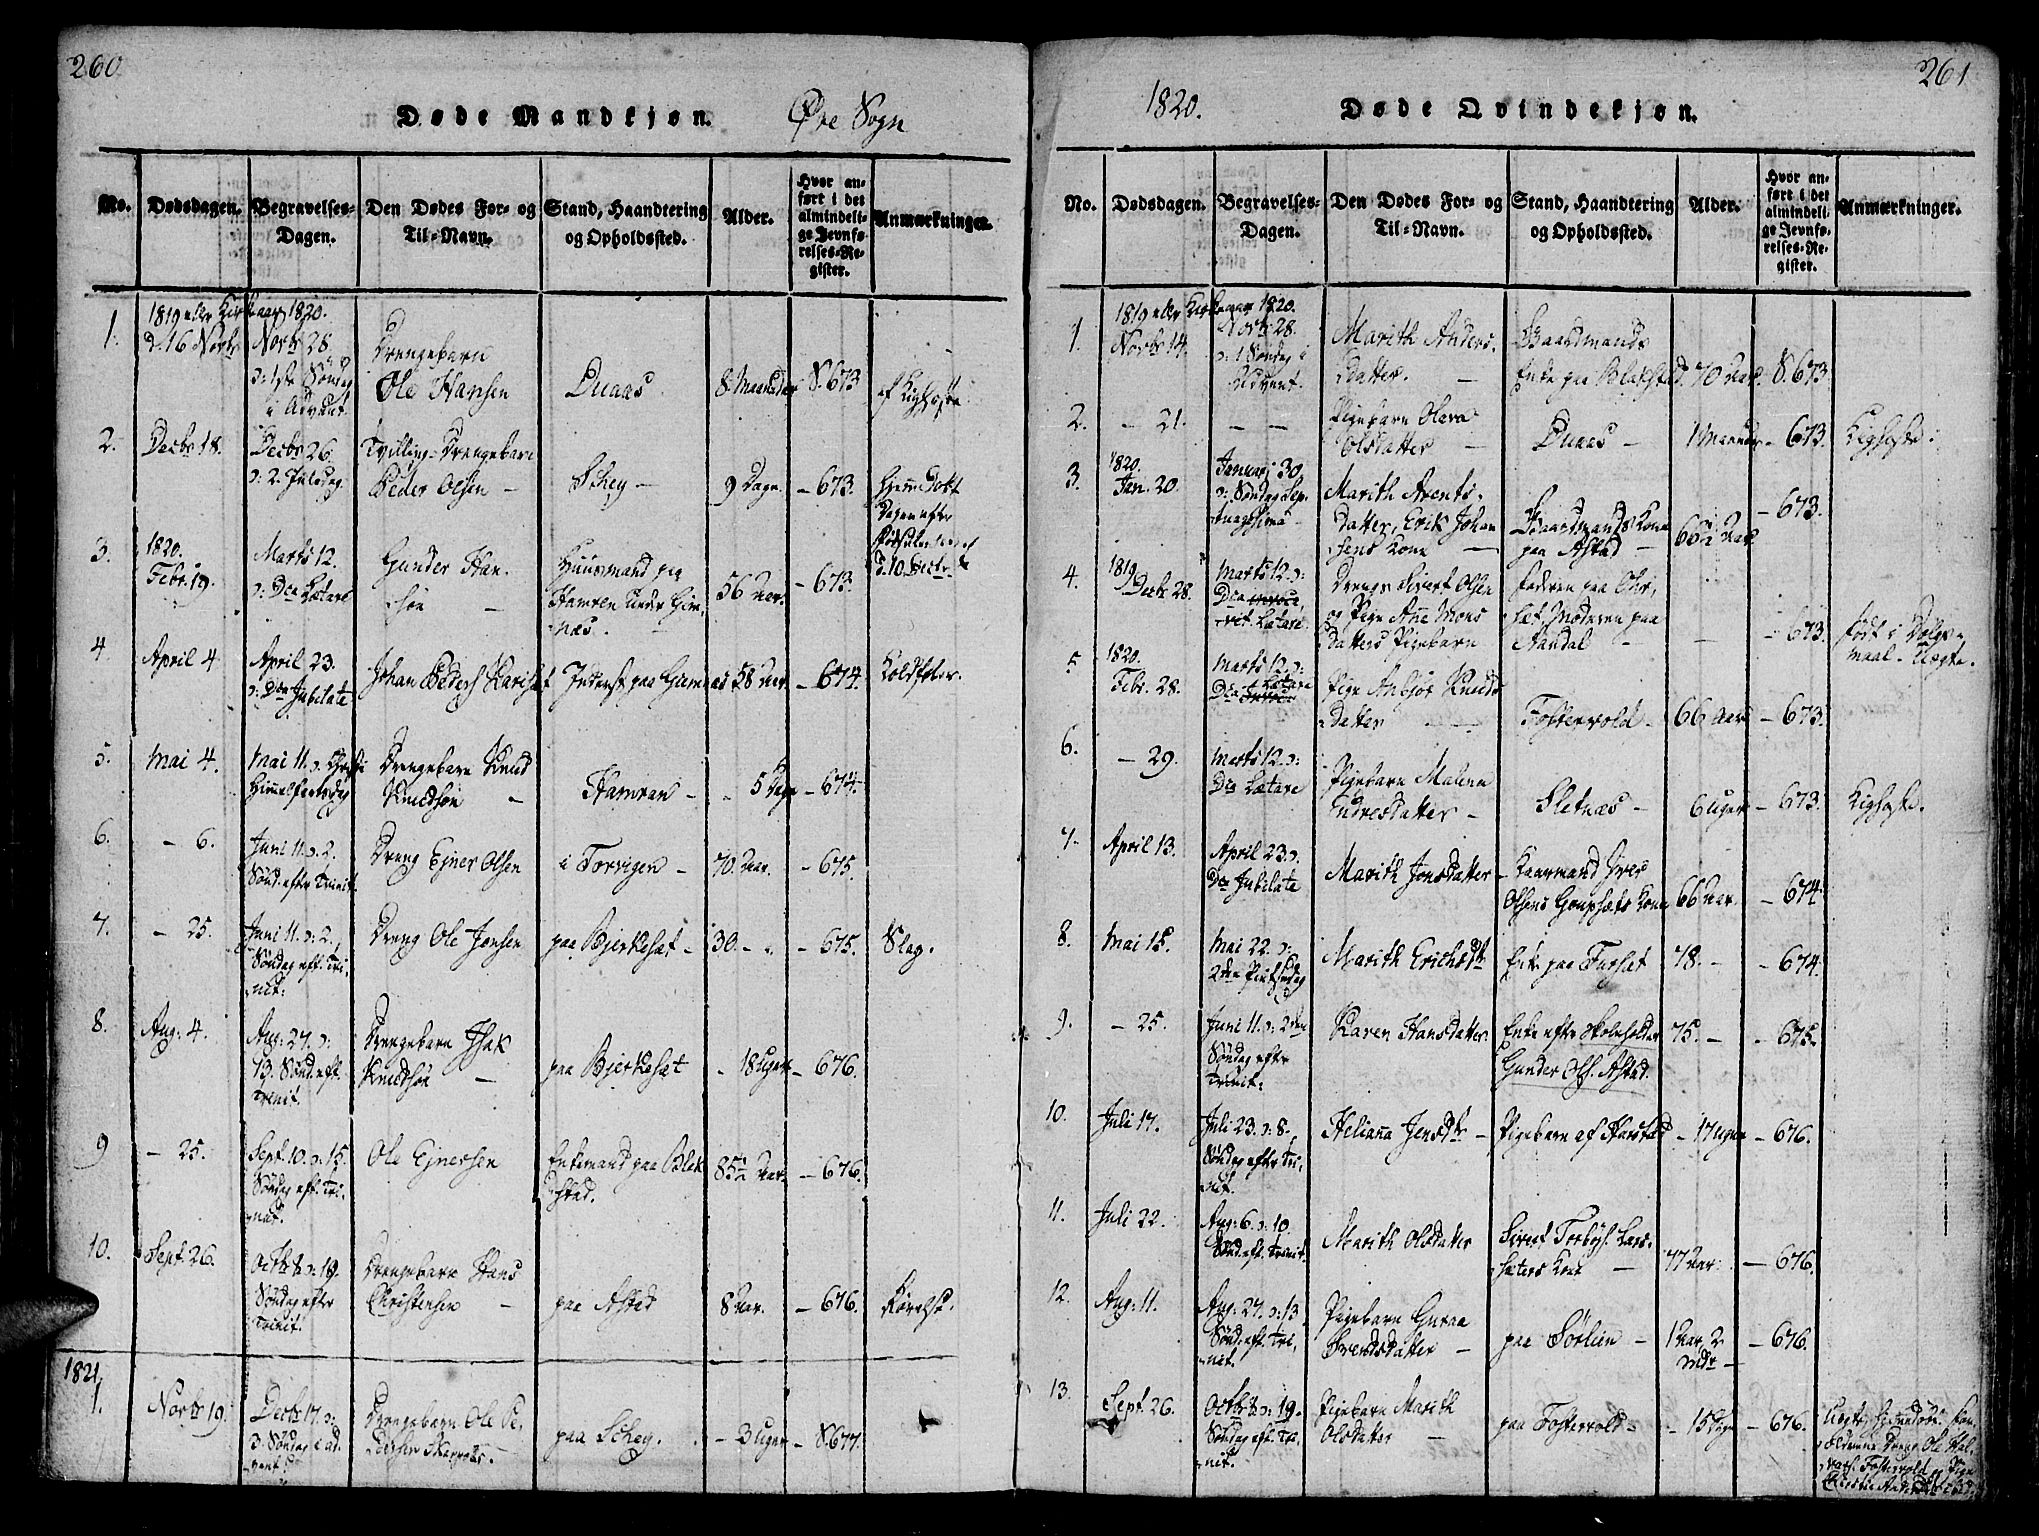 260
Døde Mandkjøn.
Øre Sogn
No.
Dødsdagen.
Begravelses-
Dagen.
Den Dødes For- og
Til-Navn.
Stand, Haandtering
og Opholdssted.
Alder.
Hvor an-
ført i det
almindeli-
ge Jevnfø-
relses-Re-
gister.
Anmærkninger.
1819 eller Kirkeaar 1820.
1. d. 16 Novbr Novbr 28
ɔ: 1ste Søndag
i Advent
Drengebarn
Ole Hansen
Duaas
8 Maaneder
S. 673
af Kighoste
2. Decbr 18. Decbr 26.
ɔ: 2. Juledag
Tvilling-Drengebarn
Peder Olsen –
Schey –
9 Dage
– 673.
Hjemmedøbt
Dagen efter
Fødselen
d. 10 Decbr
3. 1820.
Febr. 19.
Marts 12.
ɔ: Dca Lætare
Gunder Han-
søn –
Huusmand paa
Hamren under Gim-
næs.
56 Aar.
– 673.
4. April 4
April 23.
ɔ: Dca Jubilate
Johan Peders. Karihaf
Inderst paa Gimnæs
58 Aar.
– 674.
Koldfeber.
5. Mai 4.
Mai 11. ɔ: Christi
Himmelfartsdag
Drengebarn Knud
Knudsøn –
Hamran –
5 Dage
– 674.
6. – 6.
Juni 11. ɔ: 2.
Sønd. efter Trinit.
Dreng Ejner Olsen
i Torvigen –
70. Aar.
– 675.
7. – 25.
Juni 11. ɔ: 2.
Søndag eft. Tri-
nit:
Dreng Ole Jensen
paa Bjerkesæt –
30. – „
– 675.
Slag.
8. Aug: 4.
Aug: 27. ɔ:
13. Sønd. eft.
Trinit.
Drengebarn Isak
Knudsøn –
paa Bjerkesæt
18 Uger
– 676.
9 – 25.
Sept. 10. ɔ: 15.
Søndag eft. Tri-
nit.
Ole Ejnersen
Enkemand paa Blak-
stad.
85½ Aar.
– 676.
10. Sept. 26.
Octbr ɔ: 19.
Søndag efter
Trinit.
Drengebarn Hans
Christensen –
paa Astad
8 Aar.
– 676.
1821
1. Novbr 19.
Decbr 17. ɔ:
3. Søndag i Ad-
vent.
Drengebarn Ole Pe-
dersen
paa Schey.
– 3 Uger
– S. 677.
261
1820.
Døde Qvindekjøn.
No.
Dødsdagen.
Begravelses-
Dagen.
Den Dødes For- og
Til-Navn.
Stand, Haandtering
og Opholdssted.
Alder.
Hvor an-
ført i det
almindeli-
ge Jevnfø-
relses-Re-
gister.
Anmærkninger.
1819 eller Kirkeaar 1820.
1. Novbr 14.
Novbr 28.
ɔ: 1 Søndag i
Advent.
Marith Anders-
datter. –
Gaardmands
Enke paa Blakstad.
70 Aar.
S. 673
2. – 21.
– –
Pigebarn Olava
Olsdatter –
Duaas –
1 Maaned
– 673.
Kighoste.
3. 1820.
Jan. 20.
Januari 30.
ɔ: Søndag Sep-
tuagesima –
Marith Arents-
datter, Erik Johan-
sens Kone –
Gaardmands Kone
paa Astad –
66½ Aar
– 673.
4. 1819
Decbr 28.
Marts 12. ɔ:
Dca
Lætare.
Dreng Sivert Olsen
og Pige Ane Mons-
datters Pigebarn
Faderen paa Ohr-
sæt, Moderen paa
Aandal –
–
– 673.
født i Dølgs-
maal. Uægte.
5 1820.
Febr. 28.
Marts 12. ɔ:
Lætare
Dca
Pige Anbjør Knuds-
datter –
Fostervold –
66 Aar
– 673.
6. – 29.
Marts 12. ɔ:
Dca Lætare
Pigebarn Malena
Endresdatter –
Sletnæs –
6 Uger
– 673.
Kighoste.
7. April 13.
April 23. ɔ:
Dca Jubilate
Marith Jonsdatter –
Kaarmand Iver
Olsens Kone
66 Aar.
– 674.
8. Mai 15.
Mai 22. ɔ:
2den Pintsedag
Marith Erichsdtr
Enke paa Furset
78. –
– 674.
9. – 25.
Juni 11. ɔ: 2den
Søndag efter
Trinit.
Karen Hansdatter
Enke efter Skoleholder
Gunder Ols. Astad.
75. –
– 675.
10. Juli 17.
Juli 23. ɔ: 8.
Søndag efter Tri-
nit.
Heliana Jensdtr –
Pigebarn af Harstad
– 17 Uger
– 676.
11. Juli 22.
Aug: 6. ɔ: 10
Sønd. eft. Trinit.
Marith Olsdatter
Sivert Torbjs. Lars-
sæters Kone –
77 Aar
– 676.
12. Aug: 11.
Aug: 27. ɔ: 13
Sønd. eft. Tri-
nit.
Pigebarn Guraa
Svendsdatter –
paa Sørlien –
1 Aar 2
Mdr –
– 676.
13. Sept. 26.
Octbr ɔ: 19.
Søndag eft. Tri-
nit.
Pigebarn Marith
Olsdatter –
paa Fostervold –
– 15 Dage
– 676.
Uægte, hjemmedøbt. For-
ældrene Dreng Ole Hal-
vors. Fostervold og Pige